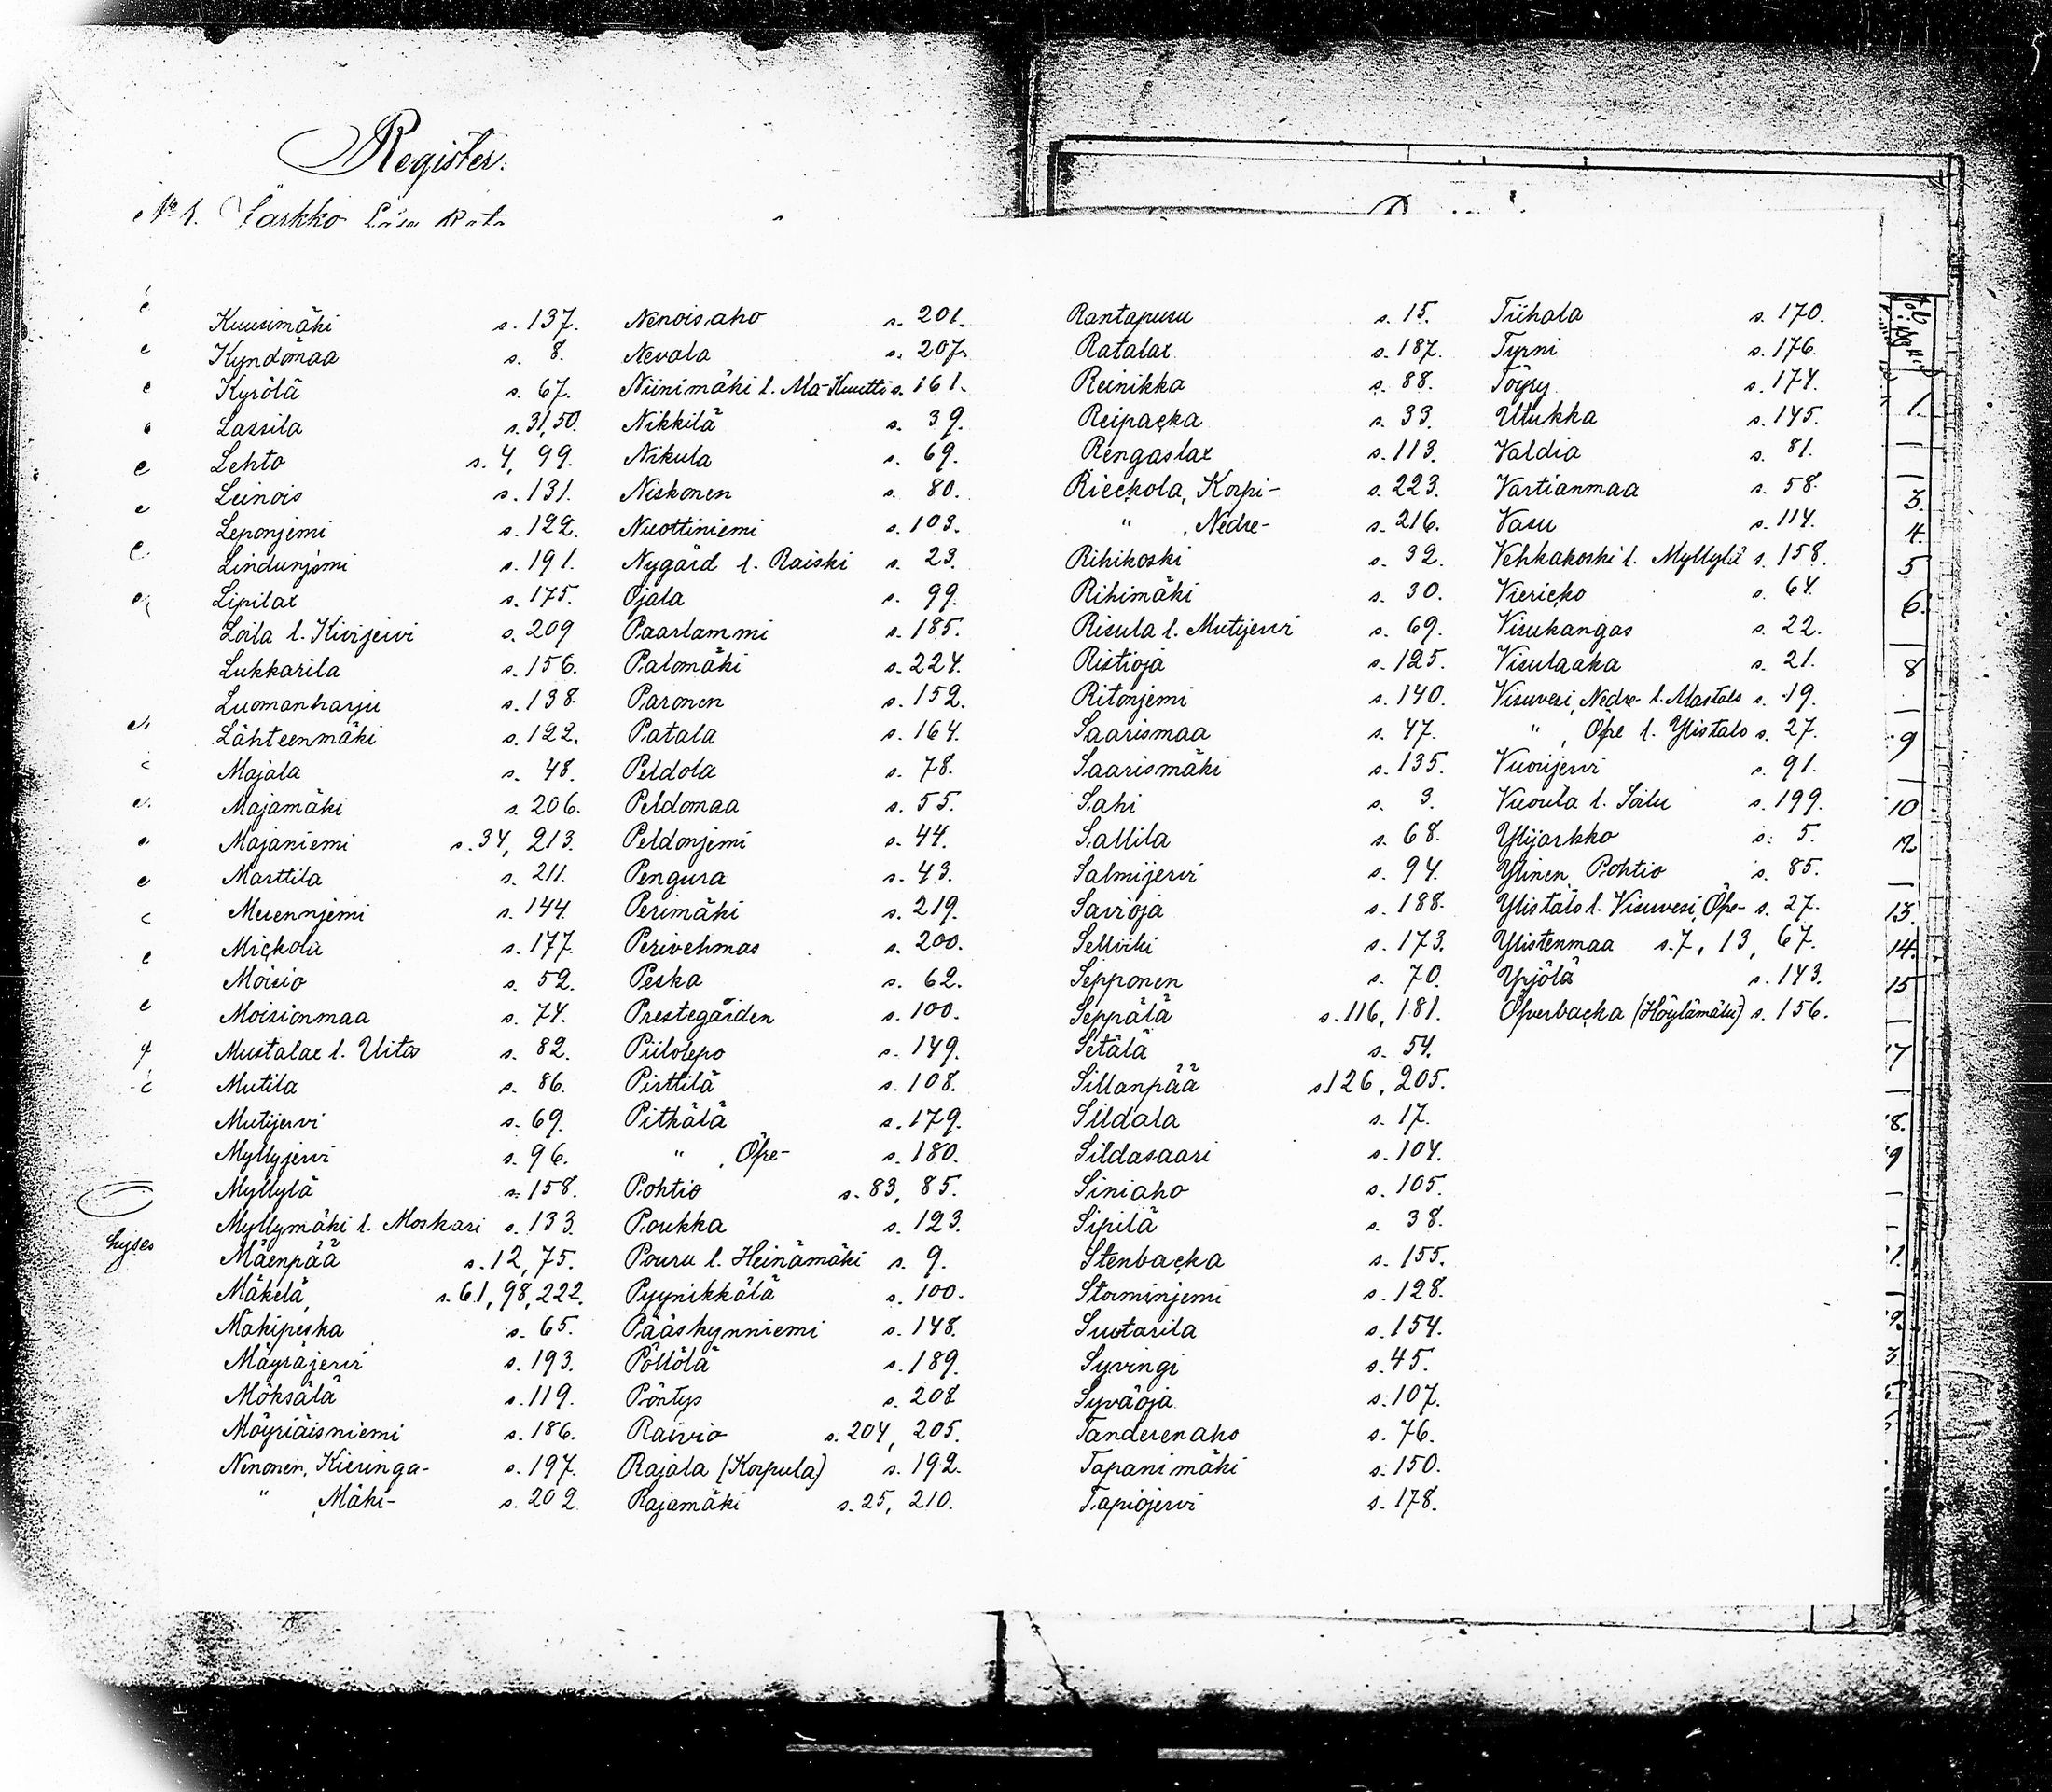 Register.
No 1. Särkko
Kuusimäki s. 137.
Kyndömaa s. 8.
Kyrölä s. 67.
Lassila s. 31, 50.
Lehto s. 4, 99.
Leinois s. 131.
Leponjemi s. 122.
Lindunjemi s. 191.
Lipilax s. 175.
Loila l. Kivijervi s. 209
Lukkarila s. 156.
Luomanharju s. 138.
Lähteenmäki s. 122.
Majala s. 48.
Majamäki s. 206.
Majaniemi s. 34, 213.
Marttila s. 211.
Merennjemi s. 144.
Mickola s. 177.
Moisio s. 52.
Moisionmaa s. 74.
Mustalax l. Uito s. 82.
Mutila s. 86.
Mutijervi s. 69.
Myllyjervi s. 96.
Myllylä s. 158.
Myllymäki l. Moskari s. 133.
Mäenpää s. 12, 75.
Mäkelä s. 61, 98, 222.
Mäkipeska s. 65.
Mäyräjervi s. 193.
Möksälä s. 119.
Möyriäisniemi s. 186.
Nenonen, Kieringa- s. 197.
" , Mäki- s. 202
Nenoisaho s. 201.
Nevala s. 207.
Niinimäki l. Ma-Kuutti s. 161.
Nikkilä s. 39.
Nikula s. 69.
Niskonen s. 80.
Nuottiniemi s. 103.
Nygård l. Raiski s. 23.
Ojala s. 99.
Paarlammi s. 185.
Palomäki s. 224.
Paronen s. 152.
Patala s. 164.
Peldola s. 78.
Peldomaa s. 55.
Peldonjemi s. 44.
Pengura s. 43.
Perimäki s. 219.
Perivehmas s. 200.
Peska s. 62.
Prestegården s. 100.
Piilolepo s. 149.
Pirttilä s. 108.
Pitkälä s. 179.
" , Öfre- s. 180.
Pohtio s. 83, 85.
Poukka s. 123.
Pouru l. Heinämäki s. 9.
Pyynikkälä s. 100.
Pääskynniemi s. 148.
Pöllölä s. 189.
Pöntys s. 208
Raivio s. 204, 205.
Rajala (Korpula) s. 192.
Rajamäki s. 25, 210.
Rantapuru s. 15.
Ratalax s. 187.
Reinikka s. 88.
Reipacka s. 33.
Rengaslax s. 113.
Rieckola, Korpi- s. 223.
" , Nedre- s. 216.
Rihikoski s. 32.
Rihimäki s. 30.
Risula l. Mutijervi s. 69.
Ristioja s. 125.
Ritonjemi s. 140.
Saarismaa s. 47.
Saarismäki s. 135.
Sahi s. 3.
Sallila s. 68.
Salmijervi s. 94.
Savioja s. 188.
Sellviki s. 173.
Sepponen s. 70.
Seppälä s. 116, 181.
Setälä s. 54.
Sillanpää s. 126, 205.
Sildala s. 17.
Sildasaari s. 104.
Siniaho s. 105.
Sipilä s. 38.
Stenbacka s. 155.
Storminjemi s. 128.
Suutarila s. 154.
Syvingi s. 45.
Syväoja s. 107.
Tanderenaho s. 76.
Tapanimäki s. 150.
Tapiojervi s. 178.
Tiihala s. 170.
Tyrni s. 176.
Töyry s. 174.
Utukka s. 145.
Valdia s. 81.
Vartianmaa s. 58.
Vasu s. 114.
Vehkakoski l. Myllylä s. 158.
Viericko s. 64.
Visukangas s. 22.
Visulaaka s. 21.
Visuvesi, Nedre- l. Mastalo s. 19.
" , Öfre l. Ylistalo s. 27.
Vuorijervi s. 91.
Vuorila l. Soilu s. 199.
Ylijarkko s. 5.
Ylinen Pohtio s. 85.
Ylistalo l. Visuvesi, Öfre- s. 27.
Ylistenmaa s. 7, 13, 67.
Yrjölä s. 143.
Öfverbacka (Höylämäki) s. 156.